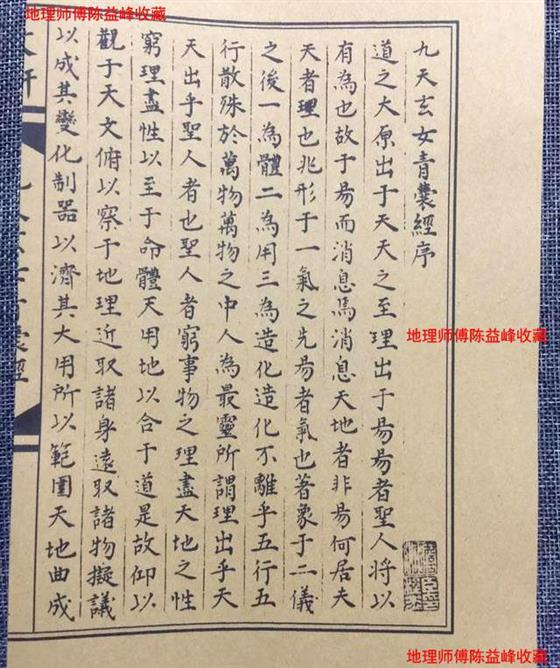 地理师傅陈益峰收藏
九天玄女青囊經序
道之大原出于天天之至理出于易易者聖人將以
有為也故于易而消息焉消息天地者非易何居夫
天者理也兆形于一氣之先易者氣也著象于二儀
之後一為體二為用三為造化造化不離乎五行五
行散殊於萬物萬物之中人為最靈所謂理出乎天
天出乎聖人者也聖人者窮事物之理盡天地之性
窮理盡性以至于命體天用地以合于道是故仰以
觀于天文俯以察于地理近取諸身遠取諸物擬議
以成其變化制器以濟其大用所以範圍天地曲成
地理师傅陈益峰收藏
地理师傅陈益峰收藏